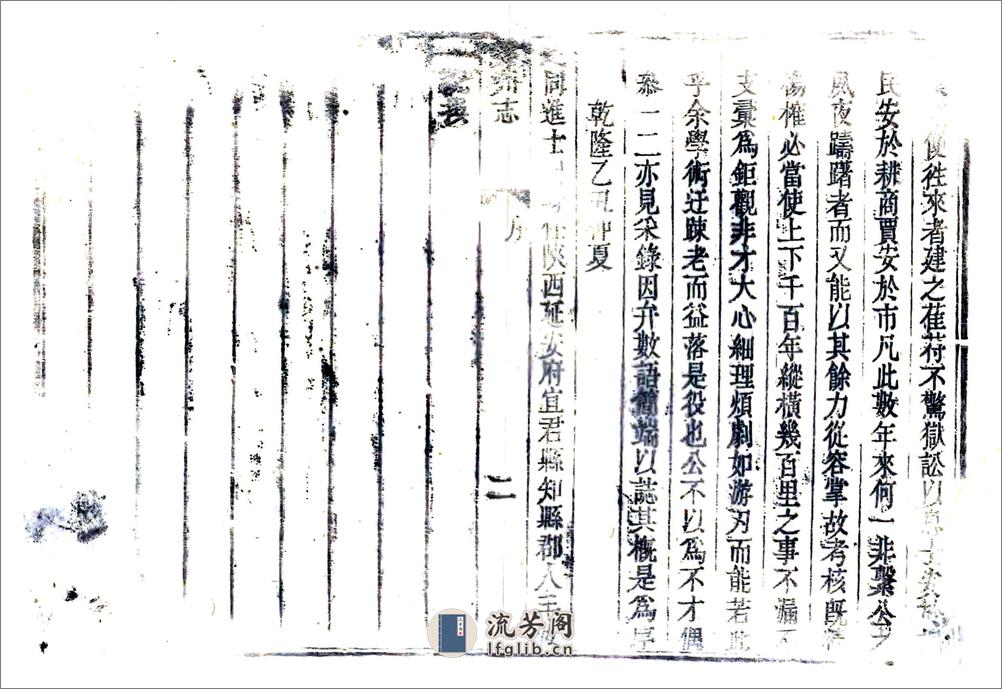 使徃來者建之萑苻不驚獄訟以
民安於耕商賈安於市凡此數年來何一非繫公之
夙夜躊躇者而又能以其餘力從容掌故考核旣
揚榷必當使上下千百年縱橫幾百里之事不漏不
支稾爲鉅觀非才大心細理煩劇如游刃而能若此
乎余學術迂踈老而益落是役也公不以爲不才偶
叅一二亦見采錄因弁數語簡端以誌其槪是爲序
乾隆乙丑仲夏
同進士 陜西延安府宜君縣知縣郡人王
志
序
二
流芳阁
lfglib.cn